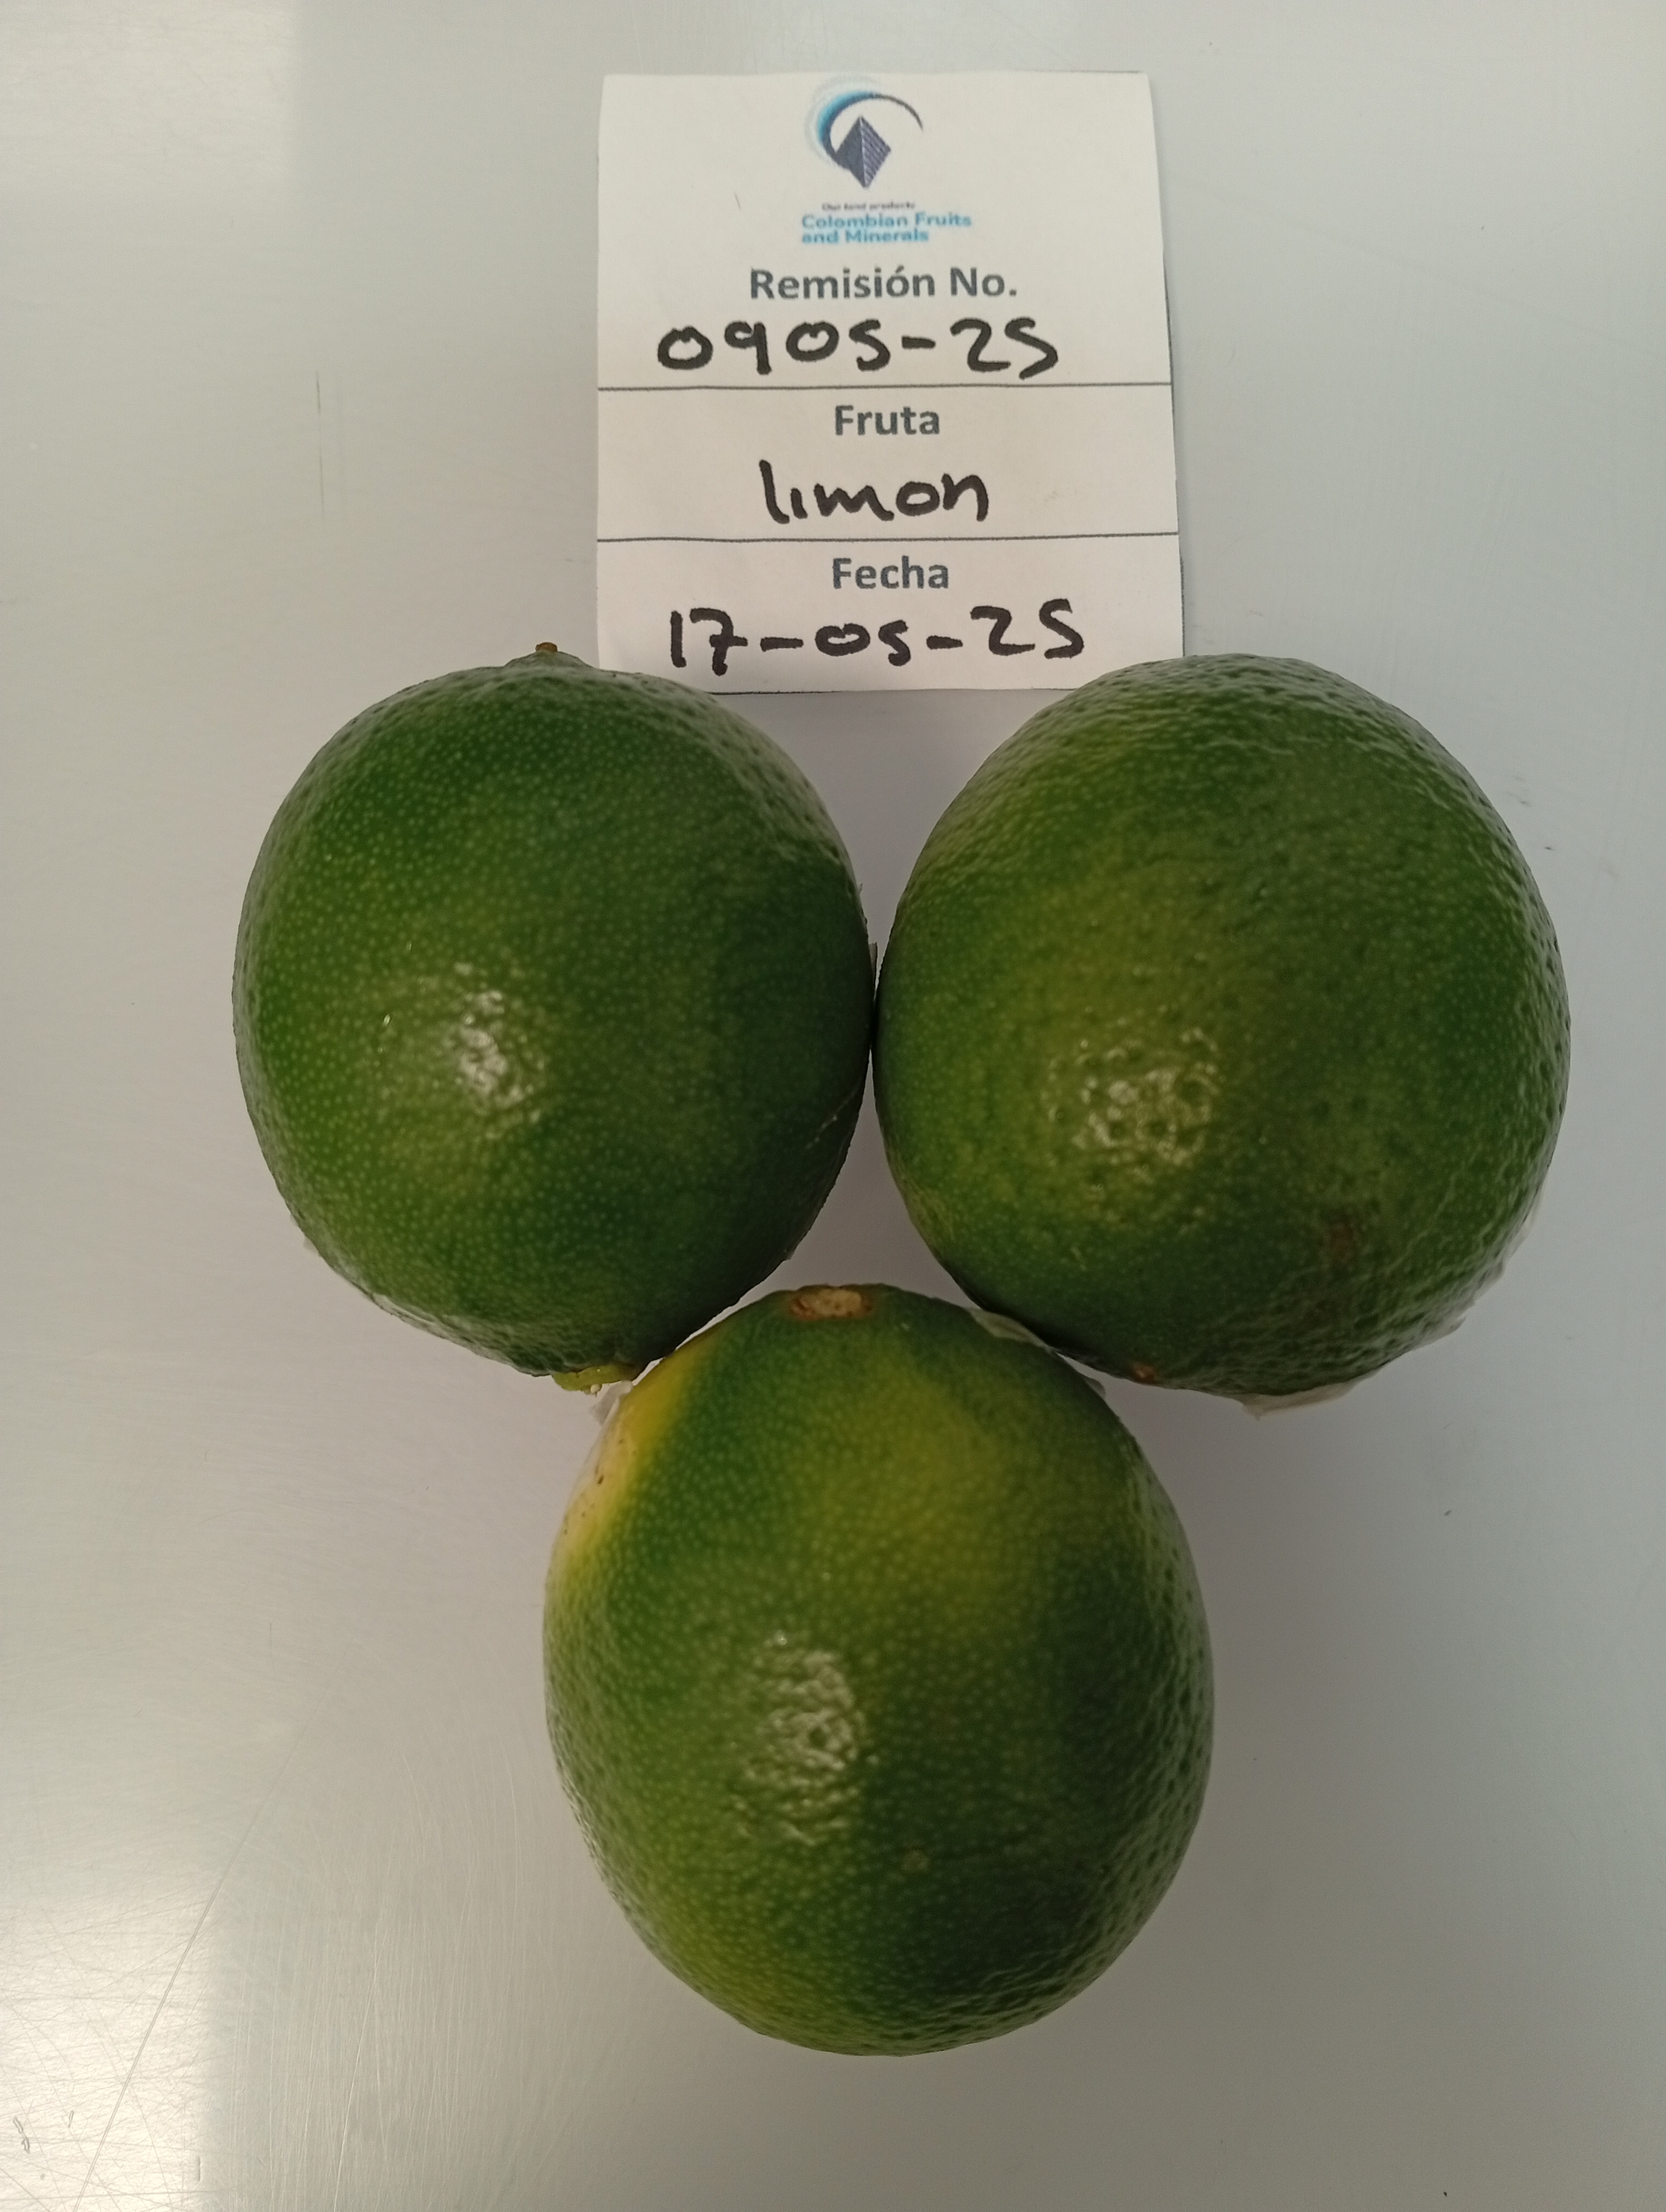 Our best products
Colombian Fruits
and Minerals
Remisión No.
0905-25
Fruta
limon
Fecha
17-05-25